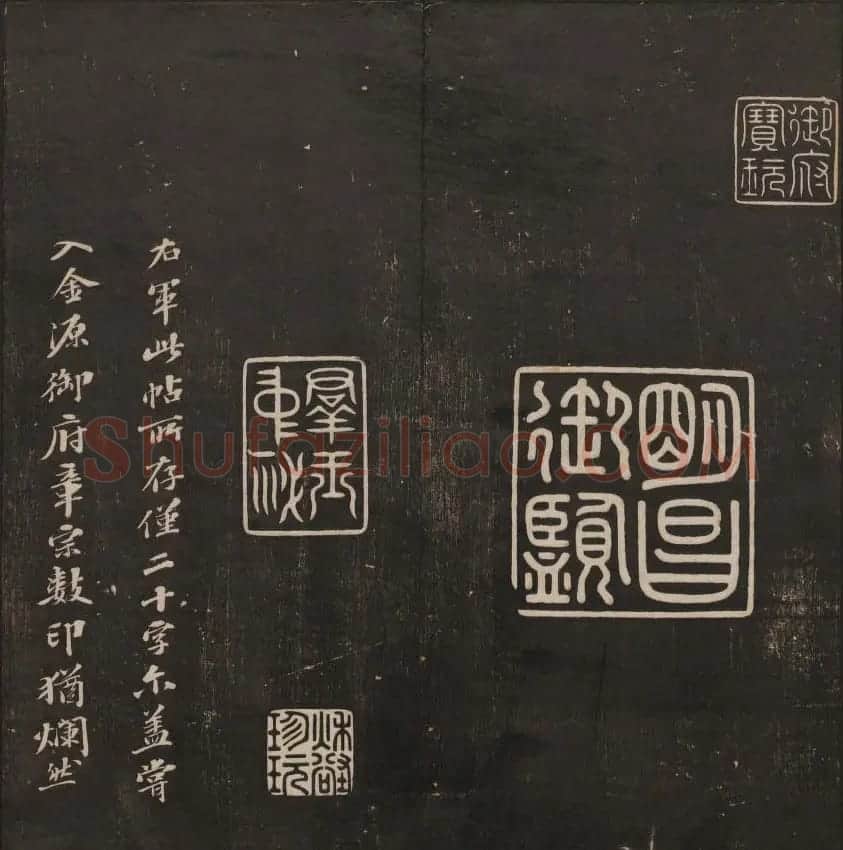 御府
寶玩
明昌
御覽
群玉
中祕
秋壑
珍玩
右軍此帖所存僅二十字尒蓋嘗
入金源御府章宗數印猶爛然
Shufaziliao.com